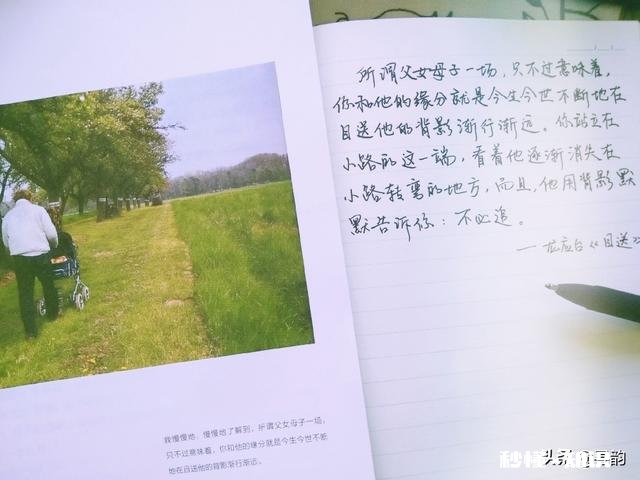 所谓父女母子一场，只不过意味着，
你和他的缘分就是今生今世不断地在
目送他的背影渐行渐远。你站立在
小路的这一端，看着他逐渐消失在
小路转弯的地方，而且，他用背影默
默告诉你：不必追。
——龙应台《目送》
我慢慢地、慢慢地了解到，所谓父女母子一场，
只不过意味着，你和他的缘分就是今生今世不断
地在目送他的背影渐行渐远。